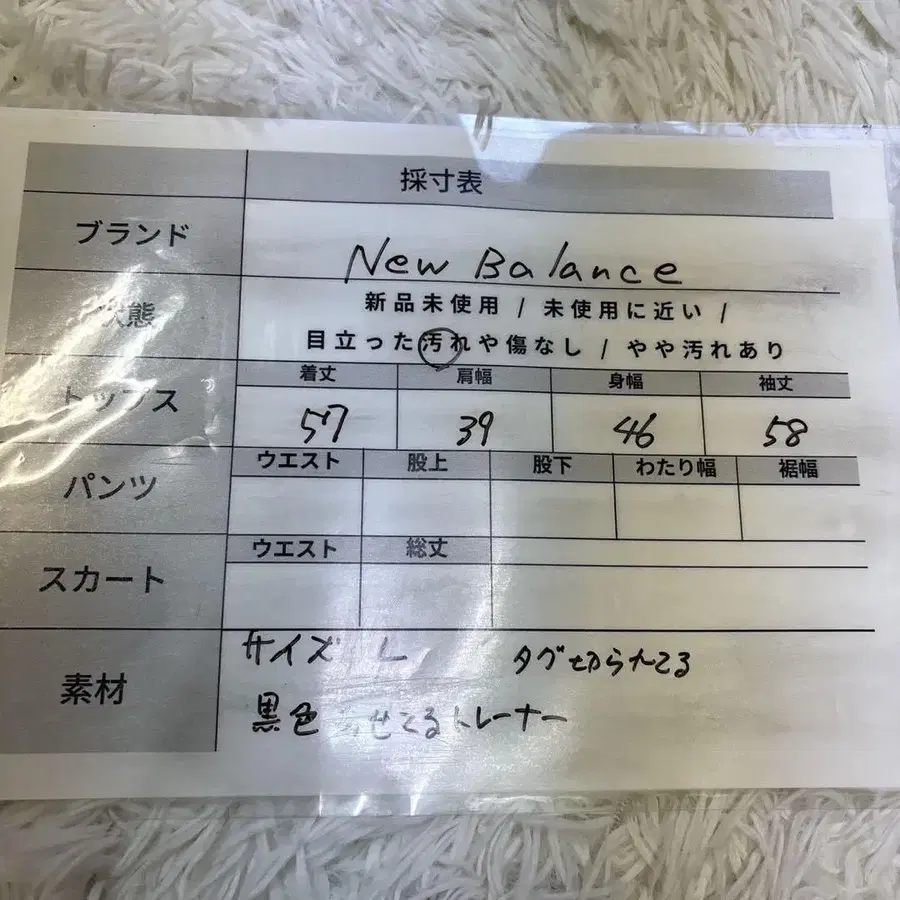 採寸表
ブランド New Balance
状態 新品未使用 / 未使用に近い /
目立った汚れや傷なし / やや汚れあり
トップス 着丈 肩幅 身幅 袖丈
57 39 46 58
パンツ ウエスト 股上 股下 わたり幅 裾幅
スカート ウエスト 総丈
素材 サイズ L タグ切られてる
黒色 あせてるトレーナー